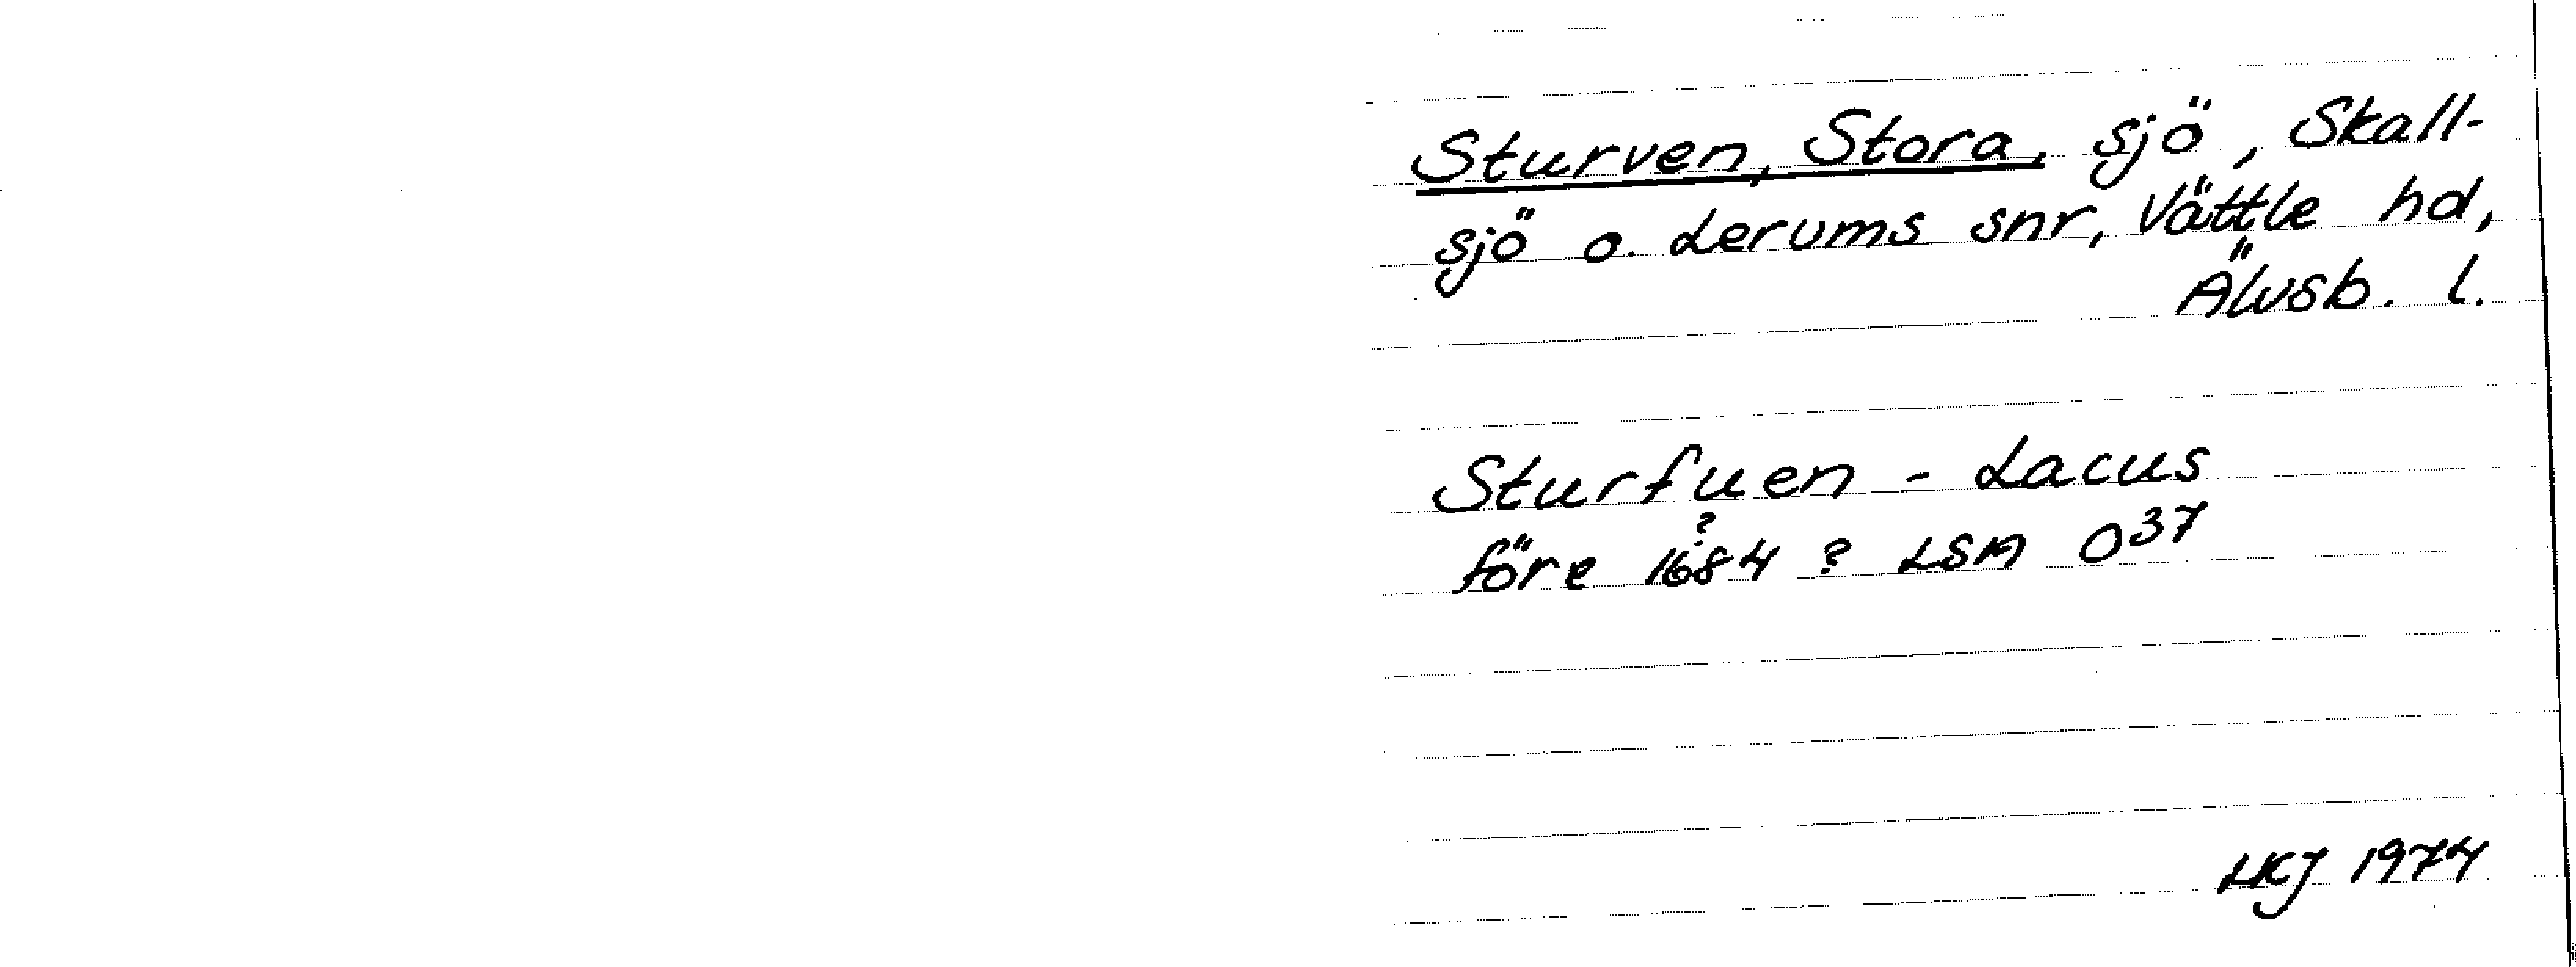 Sturven, Stora, sjö, Skall-
sjö o. Lerums snr, Vättle hd,
Älvsb. l.
Sturfuen - Lacus
?
före 1684 ? LSA O37
LKJ 1974